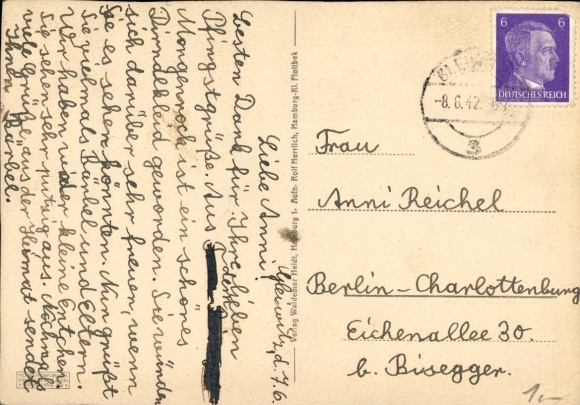 Gleiwitz, d. 7.6.
Liebe Anni!
Besten Dank für Ihre lieben
Pfingstgrüße. Aus
Morgenrock ist ein schönes
Dirndelkleid geworden. Sie würden
sich darüber sehr freuen, wenn
Sie es sehen könnten. Nun grüßt
Sie vielmals Bärbel und Eltern.
Wir haben wieder kleine Entchen.
Sie sehen sehr putzig aus. Nochmals
viele Grüße aus der Heimat sendet
Ihnen Bärbel.
Verlag Waldemar Heldt, Hamburg 1. Aufn. Rolf Herrlich, Hamburg-Kl. Flottbek
6 6
DEUTSCHES REICH
-8.6.42
3
Frau
Anni Reichel
Berlin-Charlottenburg
Eichenallee 30.
b. Bisegger.
1,-